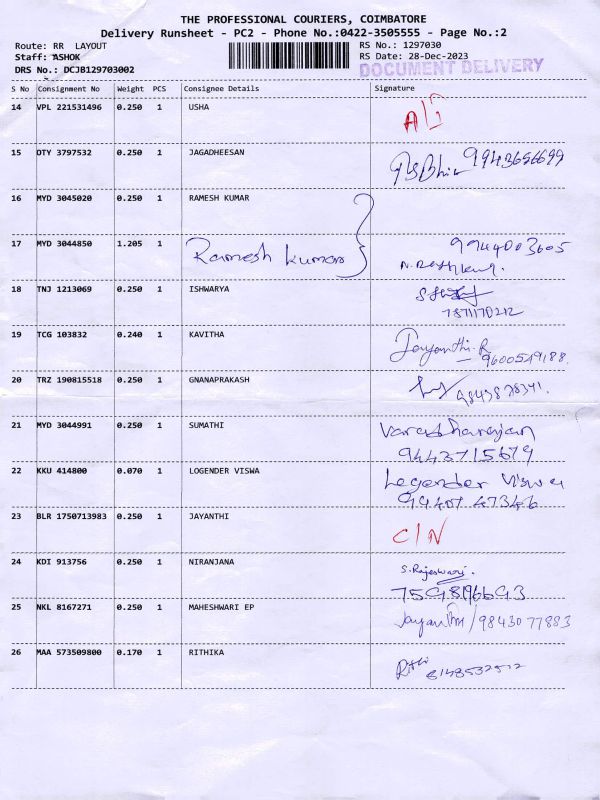 THE PROFESSIONAL COURIERS, COIMBATORE
Delivery Runsheet - PC2 - Phone No.:0422-3505555 - Page No.:2
Route: RR LAYOUT
Staff: ASHOK
DRS No.: DCJB129703002
RS No.: 1297030
RS Date: 28-Dec-2023
DOCUMENT DELIVERY
S No Consignment No Weight PCS Consignee Details Signature
14 VPL 221531496 0.250 1 USHA
15 DTY 3797532 0.250 1 JAGADHEESAN 9943656699
16 MYD 3045020 0.250 1 RAMESH KUMAR
17 MYD 3044850 1.205 1 Ramesh Kumar 9944003605
18 TNJ 1213069 0.250 1 ISHWARYA
19 TCG 103832 0.240 1 KAVITHA Jayanthi.R
9600549188.
20 TRZ 190815518 0.250 1 GNANAPRAKASH
21 MYD 3044991 0.250 1 SUMATHI Varadharajan
9443715679
22 KKU 414800 0.070 1 LOGENDER VISWA Logender Viswa
99401 47346
23 BLR 1750713983 0.250 1 JAYANTHI C/N
24 KDI 913756 0.250 1 NIRANJANA S.Rajeswari.
7598196693
25 NKL 8167271 0.250 1 MAHESHWARI EP Jayanthi / 9843077883
26 MAA 573509800 0.170 1 RITHIKA 8148532512